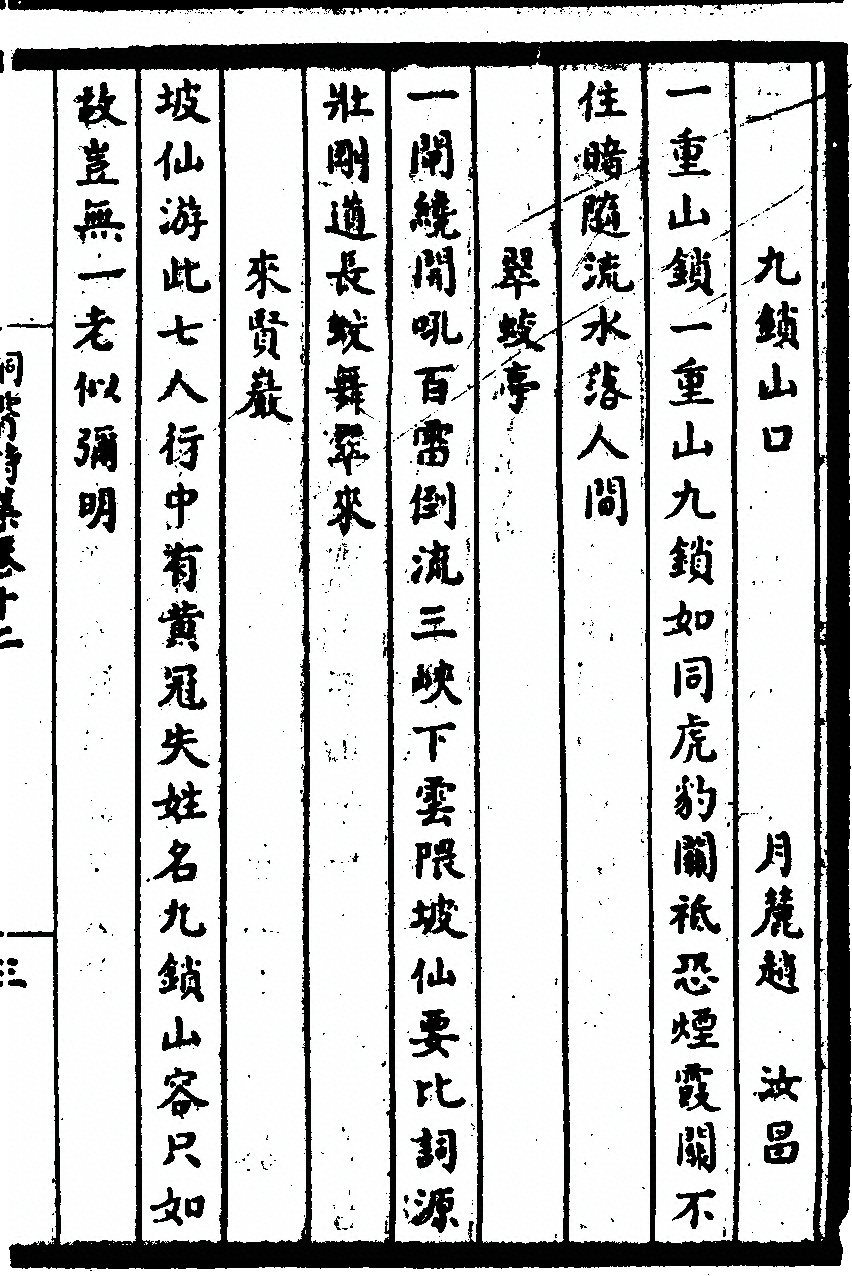 九鎖山口 月麓趙 汝昌
一重山鎖一重山九鎖如同虎豹關祗恐煙霞關不
住暗隨流水落人間
翠蛟亭
一閘繞開吼百雷倒流三峽下雲隈坡仙要比詞源
壯剛道長蛟舞翠來
來賢巖
坡仙游此七人行中有黄冠失姓名九鎖山容只如
故豈無一老似彌明
洞霄詩集卷十二
三